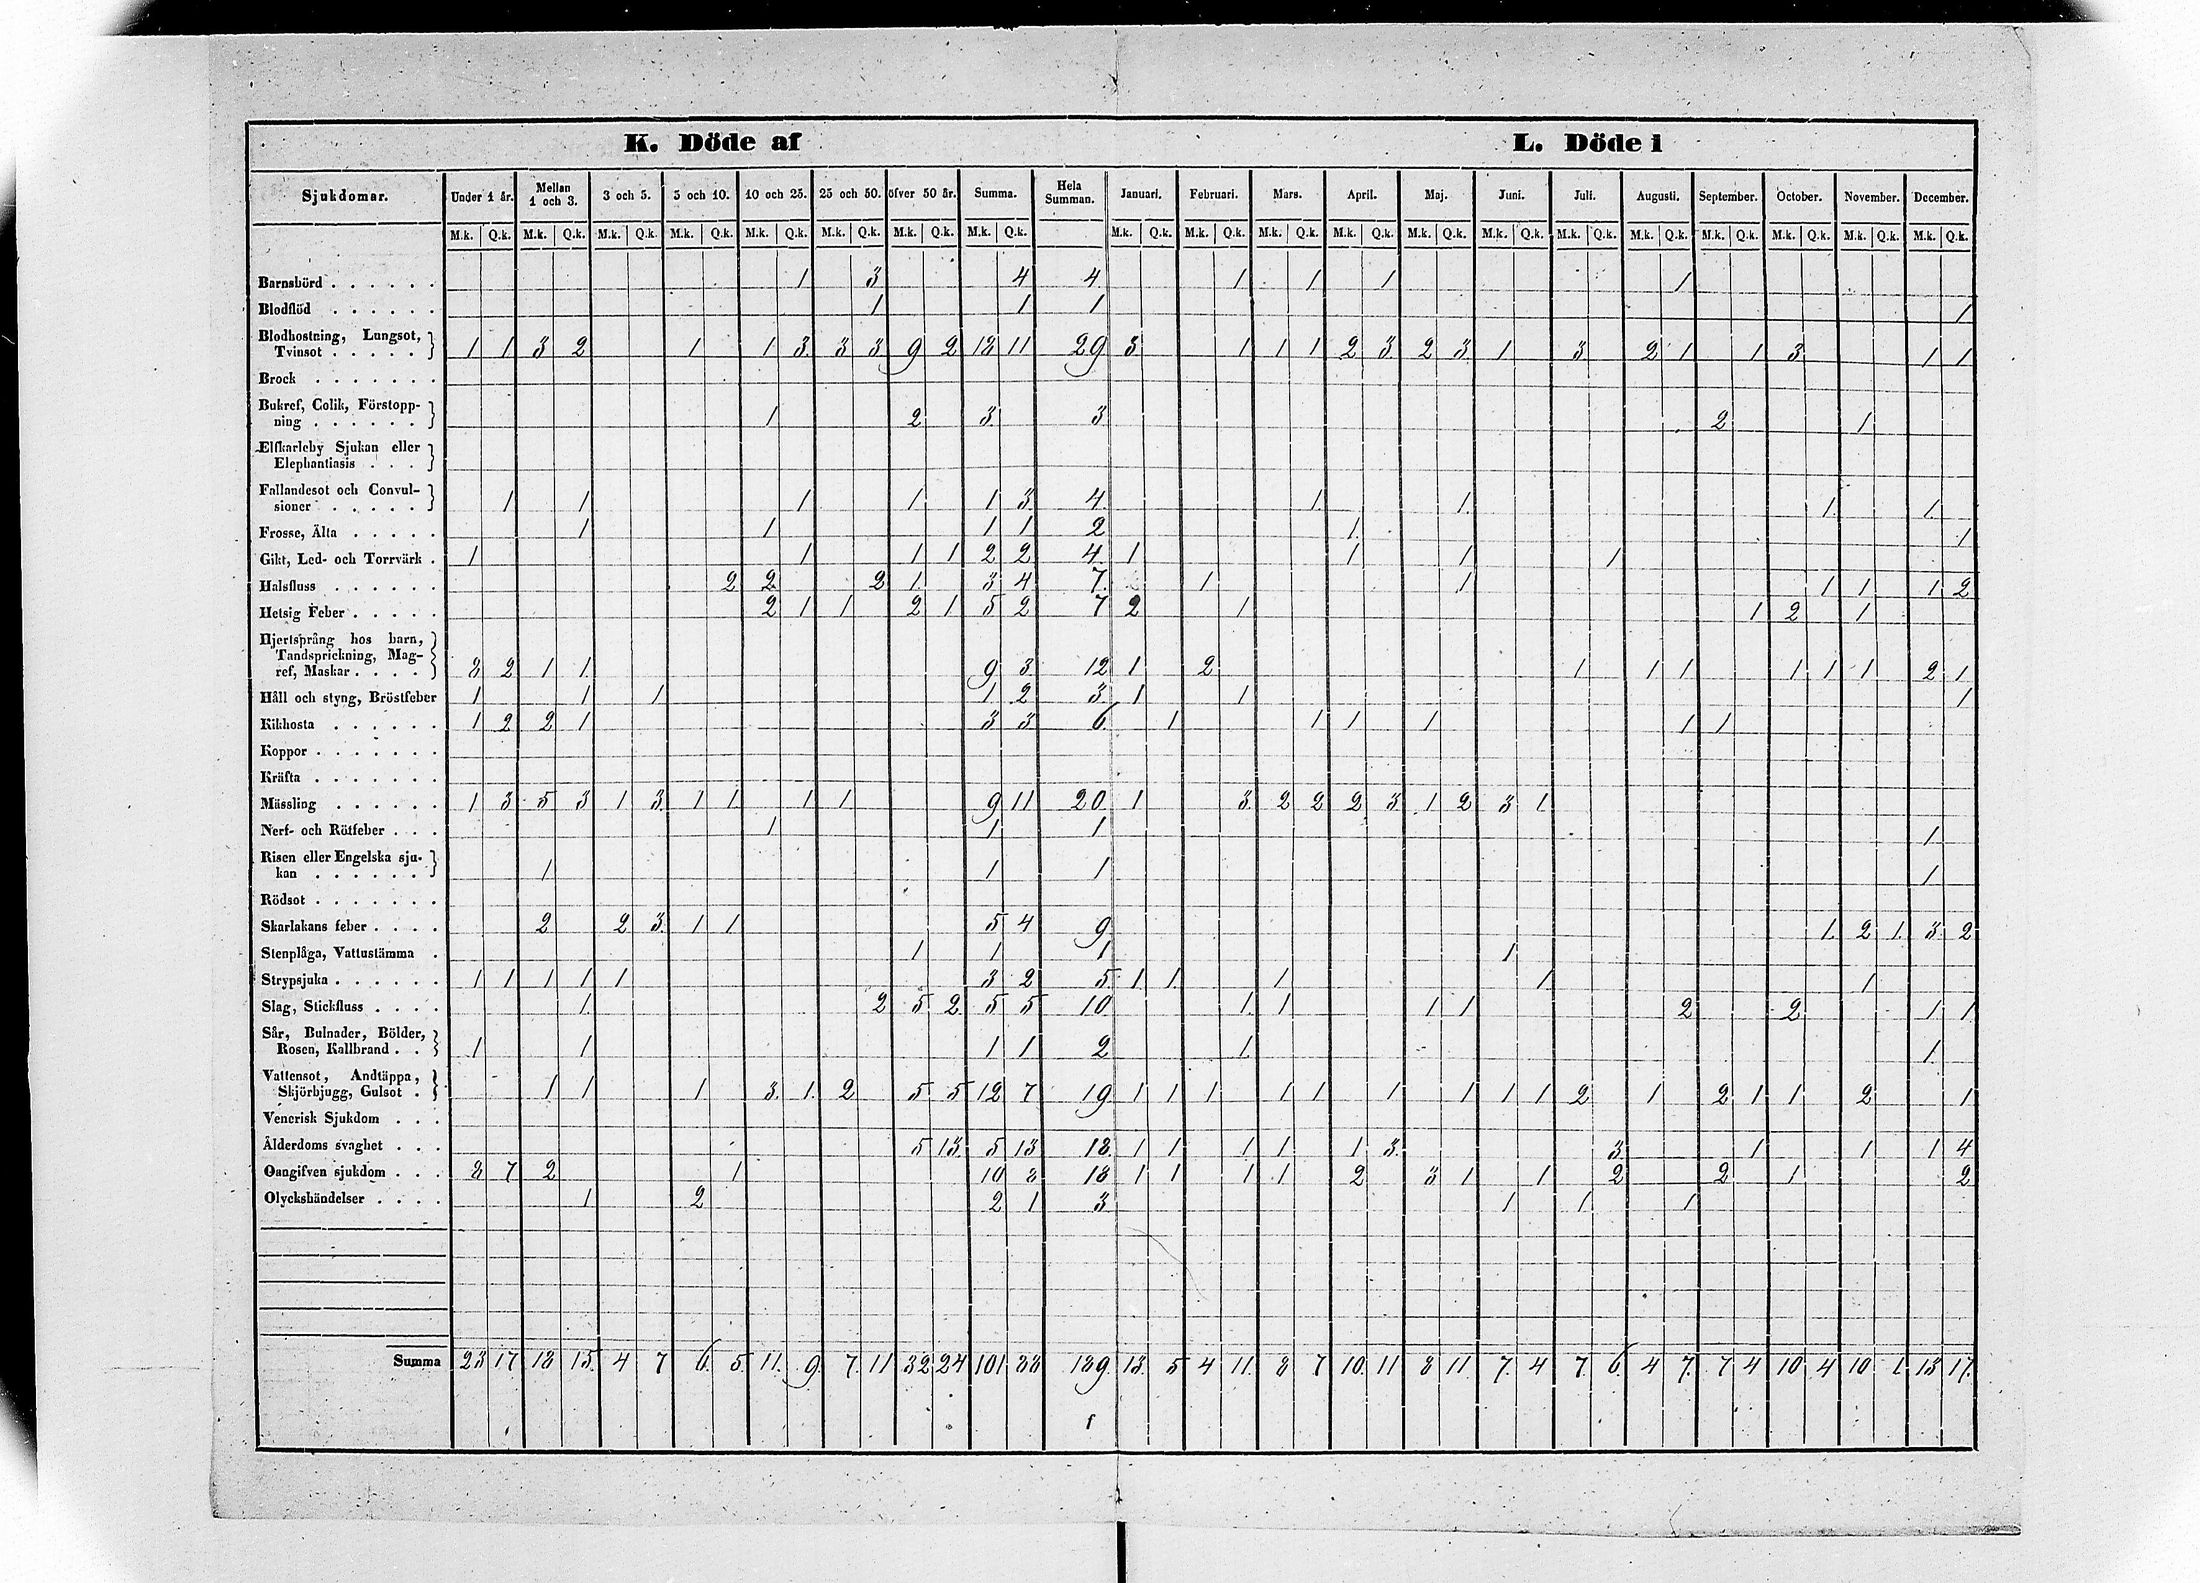 K. Döde af L. Döde i
Sjukdomar. Under 1 år. Mellan 1 och 3. 3 och 5. 5 och 10. 10 och 25. 25 och 50. öfver 50 år. Summa. Hela Summan. Januari. Februari. Mars. April. Maj. Juni. Juli. Augusti. September. October. November. December.
M.k. Q.k. M.k. Q.k. M.k. Q.k. M.k. Q.k. M.k. Q.k. M.k. Q.k. M.k. Q.k. M.k. Q.k. M.k. Q.k. M.k. Q.k. M.k. Q.k. M.k. Q.k. M.k. Q.k. M.k. Q.k. M.k. Q.k. M.k. Q.k. M.k. Q.k. M.k. Q.k. M.k. Q.k. M.k. Q.k.
Barnsbörd . . . . . . 1 3 4 4 1 1 1 1
Blodflöd . . . . . . 1 1 1 1
Blodhostning, Lungsot,
Tvinsot . . . . . 1 1 3 2 1 1 3 3 3 9 2 18 11 29 3 1 1 1 2 3 2 3 1 3 2 1 1 3 1 1
Brock . . . . . . .
Bukref, Colik, Förstopp-
ning . . . . . . 1 2 3 3 2 1
Elfkarleby Sjukan eller
Elephantiasis . . .
Fallandesot och Convul-
sioner . . . . . 1 1 1 1 1 3 4 1 1 1 1
Frosse, Älta . . . . . 1 1 1 1 2 1 1
Gikt, Led- och Torrvärk . 1 1 1 1 2 2 4 1 1 1 1
Halsfluss . . . . . . 2 2 2 1 3 4 7 1 1 1 1 1 2
Hetsig Feber . . . . . 2 1 1 2 1 5 2 7 2 1 1 2 1
Hjertsprång hos barn,
Tandsprickning, Mag-
ref, Maskar . . . . 8 2 1 1 9 3 12 1 2 1 1 1 1 1 1 2 1
Håll och styng, Bröstfeber 1 1 1 1 2 3 1 1 1
Kikhosta . . . . . . 1 2 2 1 3 3 6 1 1 1 1 1 1
Koppor . . . . . . .
Kräfta . . . . . . .
Mässling . . . . . . 1 3 5 3 1 3 1 1 1 1 9 11 20 1 3 2 2 2 3 1 2 3 1
Nerf- och Rötfeber . . . 1 1 1 1
Risen eller Engelska sju-
kan . . . . . . 1 1 1 1
Rödsot . . . . . . .
Skarlakans feber . . . . 2 2 3 1 1 5 4 9 1 2 1 3 2
Stenplåga, Vattustämma . 1 1 1 1
Strypsjuka . . . . . . 1 1 1 1 1 3 2 5 1 1 1 1 1
Slag, Stickfluss . . . . 1 2 5 2 5 5 10 1 1 1 1 2 2 1 1
Sår, Bulnader, Bölder,
Rosen, Kallbrand . . 1 1 1 1 2 1 1
Vattensot, Andtäppa,
Skjörbjugg, Gulsot . 1 1 1 3 1 2 5 5 12 7 19 1 1 1 1 1 1 1 1 1 2 1 2 1 1 2 1
Venerisk Sjukdom . . .
Ålderdoms svaghet . . . 5 13 5 13 18 1 1 1 1 1 3 3 1 1 1 4
Oangifven sjukdom . . . 8 7 2 1 10 8 18 1 1 1 1 2 3 1 1 2 2 1 2
Olyckshändelser . . . . 1 2 2 1 3 1 1 1
Summa 23 17 18 15 4 7 6 5 11 9 7 11 32 24 101 88 189 13 5 4 11 8 7 10 11 8 11 7 4 7 6 4 7 7 4 10 4 10 1 13 17